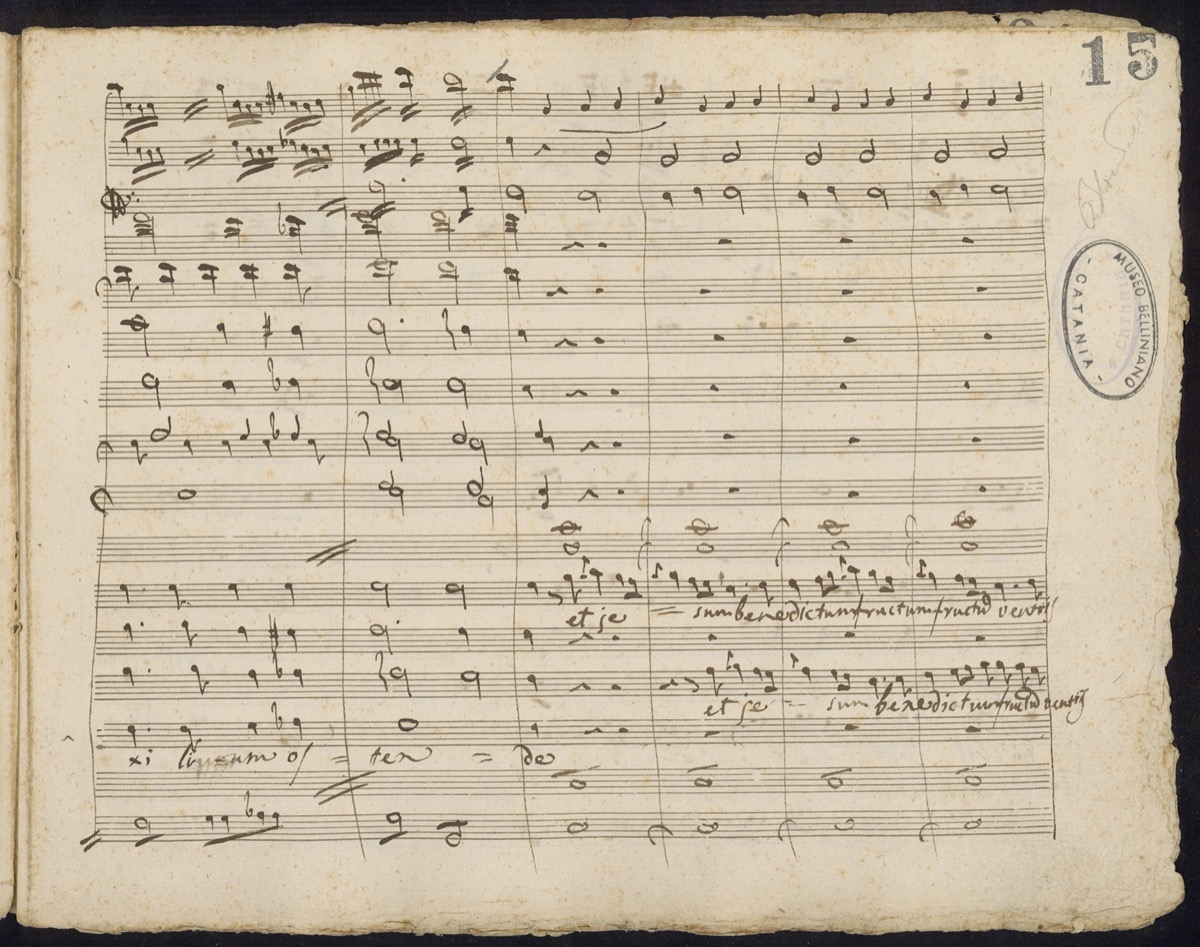 15
MUSEO BELLINIANO
- CATANIA -
et je = sum benedictum fructum fructū ventris
et je = sum benedictum fructū ventris
xi lium os = ten = de